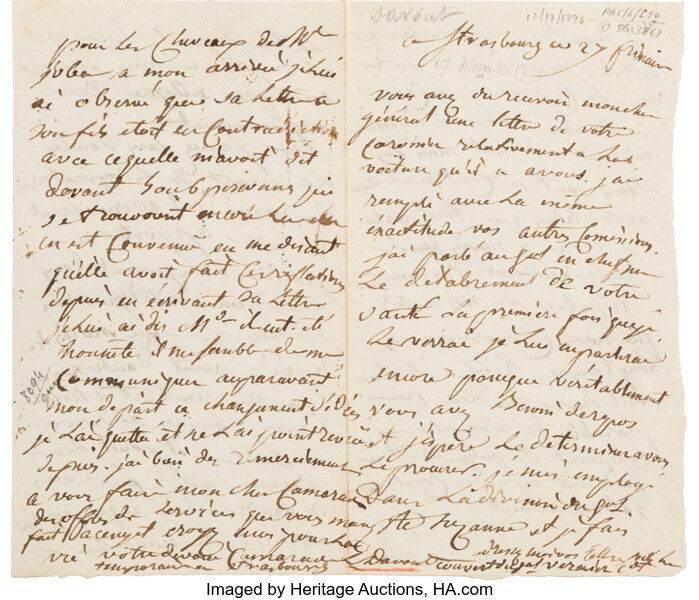 Davout
12/17/1796
a Strasbourg ce 27 frimaire
vous avez du recevoir mon cher
général une lettre de votre
relativement a la
voiture qu'il a a vous. j'ai
rempli avec la même
éxactitude vos autres Comissions.
j'ai parlé au gal en chef sur
Le delabrement de votre
santé La premiere fois que je
Le verrai je lui en parlerai
encore parceque véritablement
vous avez Besoin de repos
et j'espère Le determiner a vous
Le procurer. je suis employé
Dans La division du gal
Ste Suzanne et je fais
pour Les Chevaux de Mr
a mon arrivée je lui
ai observé que sa Lettre a
son fils etoit en Contradiction
avec ce quelle m'avoit dit
devant Soubpersonnes qui
se trouvoient encore La elle
en est Convenue en me disant
qu'elle avoit fait Ces réflections
depuis en écrivant sa Lettre
je lui ai dis Me il eut été
honnete il me semble de me
Communiquer auparavant
mon depart ce changement d'idées
je L'ai quitté et ne L'ai point revue
depuis. j'ai bien des remerciements
a vous faire mon cher Camarade
des offres de services que vous m'avez
fait
votre devoué Camarade
Davout
Strasbourg
Imaged by Heritage Auctions, HA.com